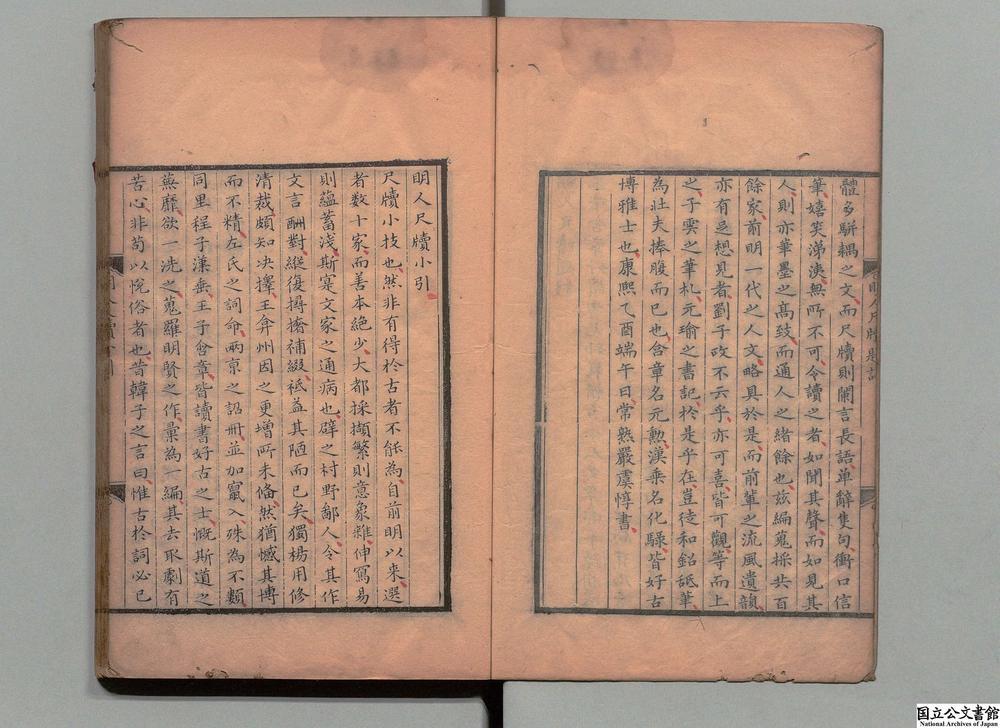 體多駢耦之文而尺牘則闌言長語單辭隻句衝口信
筆嬉笑涕洟無所不可令讀之者如聞其聲而如見其
人則亦筆墨之高致而通人之緒餘也茲編蒐採共百
餘家前明一代之人文略具於是而前輩之流風遺韻
亦有足想見者劉子政不云乎亦可喜皆可觀等而上
之子雲之筆札元瑜之書記於是乎在豈徒和鉛舐筆
為壯夫捧腹而已也含章名元勲漢乗名化騄皆好古
博雅士也康熙乙酉端午日常熟嚴虞惇書
明人尺牘小引
尺牘小技也然非有得於古者不能為自前明以來選
者数十家而善本絶少大都採擷繁則意象雜伸寫易
則蘊蓄淺斯寔文家之通病也辟之村野鄙人令其作
文言酬對縱復撏撦補綴祗益其陋而已矣獨楊用修
清裁頗知决擇王弇州因之更増所未僃然猶憾其博
而不精左氏之詞命兩京之詔冊並加竄入殊為不類
同里程子漢乗王子含章皆讀書好古之士慨斯道之
蕪靡欲一洗之蒐羅明賢之作彙為一編其去取劇有
苦心非苟以悅俗者也昔韓子之言曰惟古於詞必己
国立公文書館
National Archives of Japan